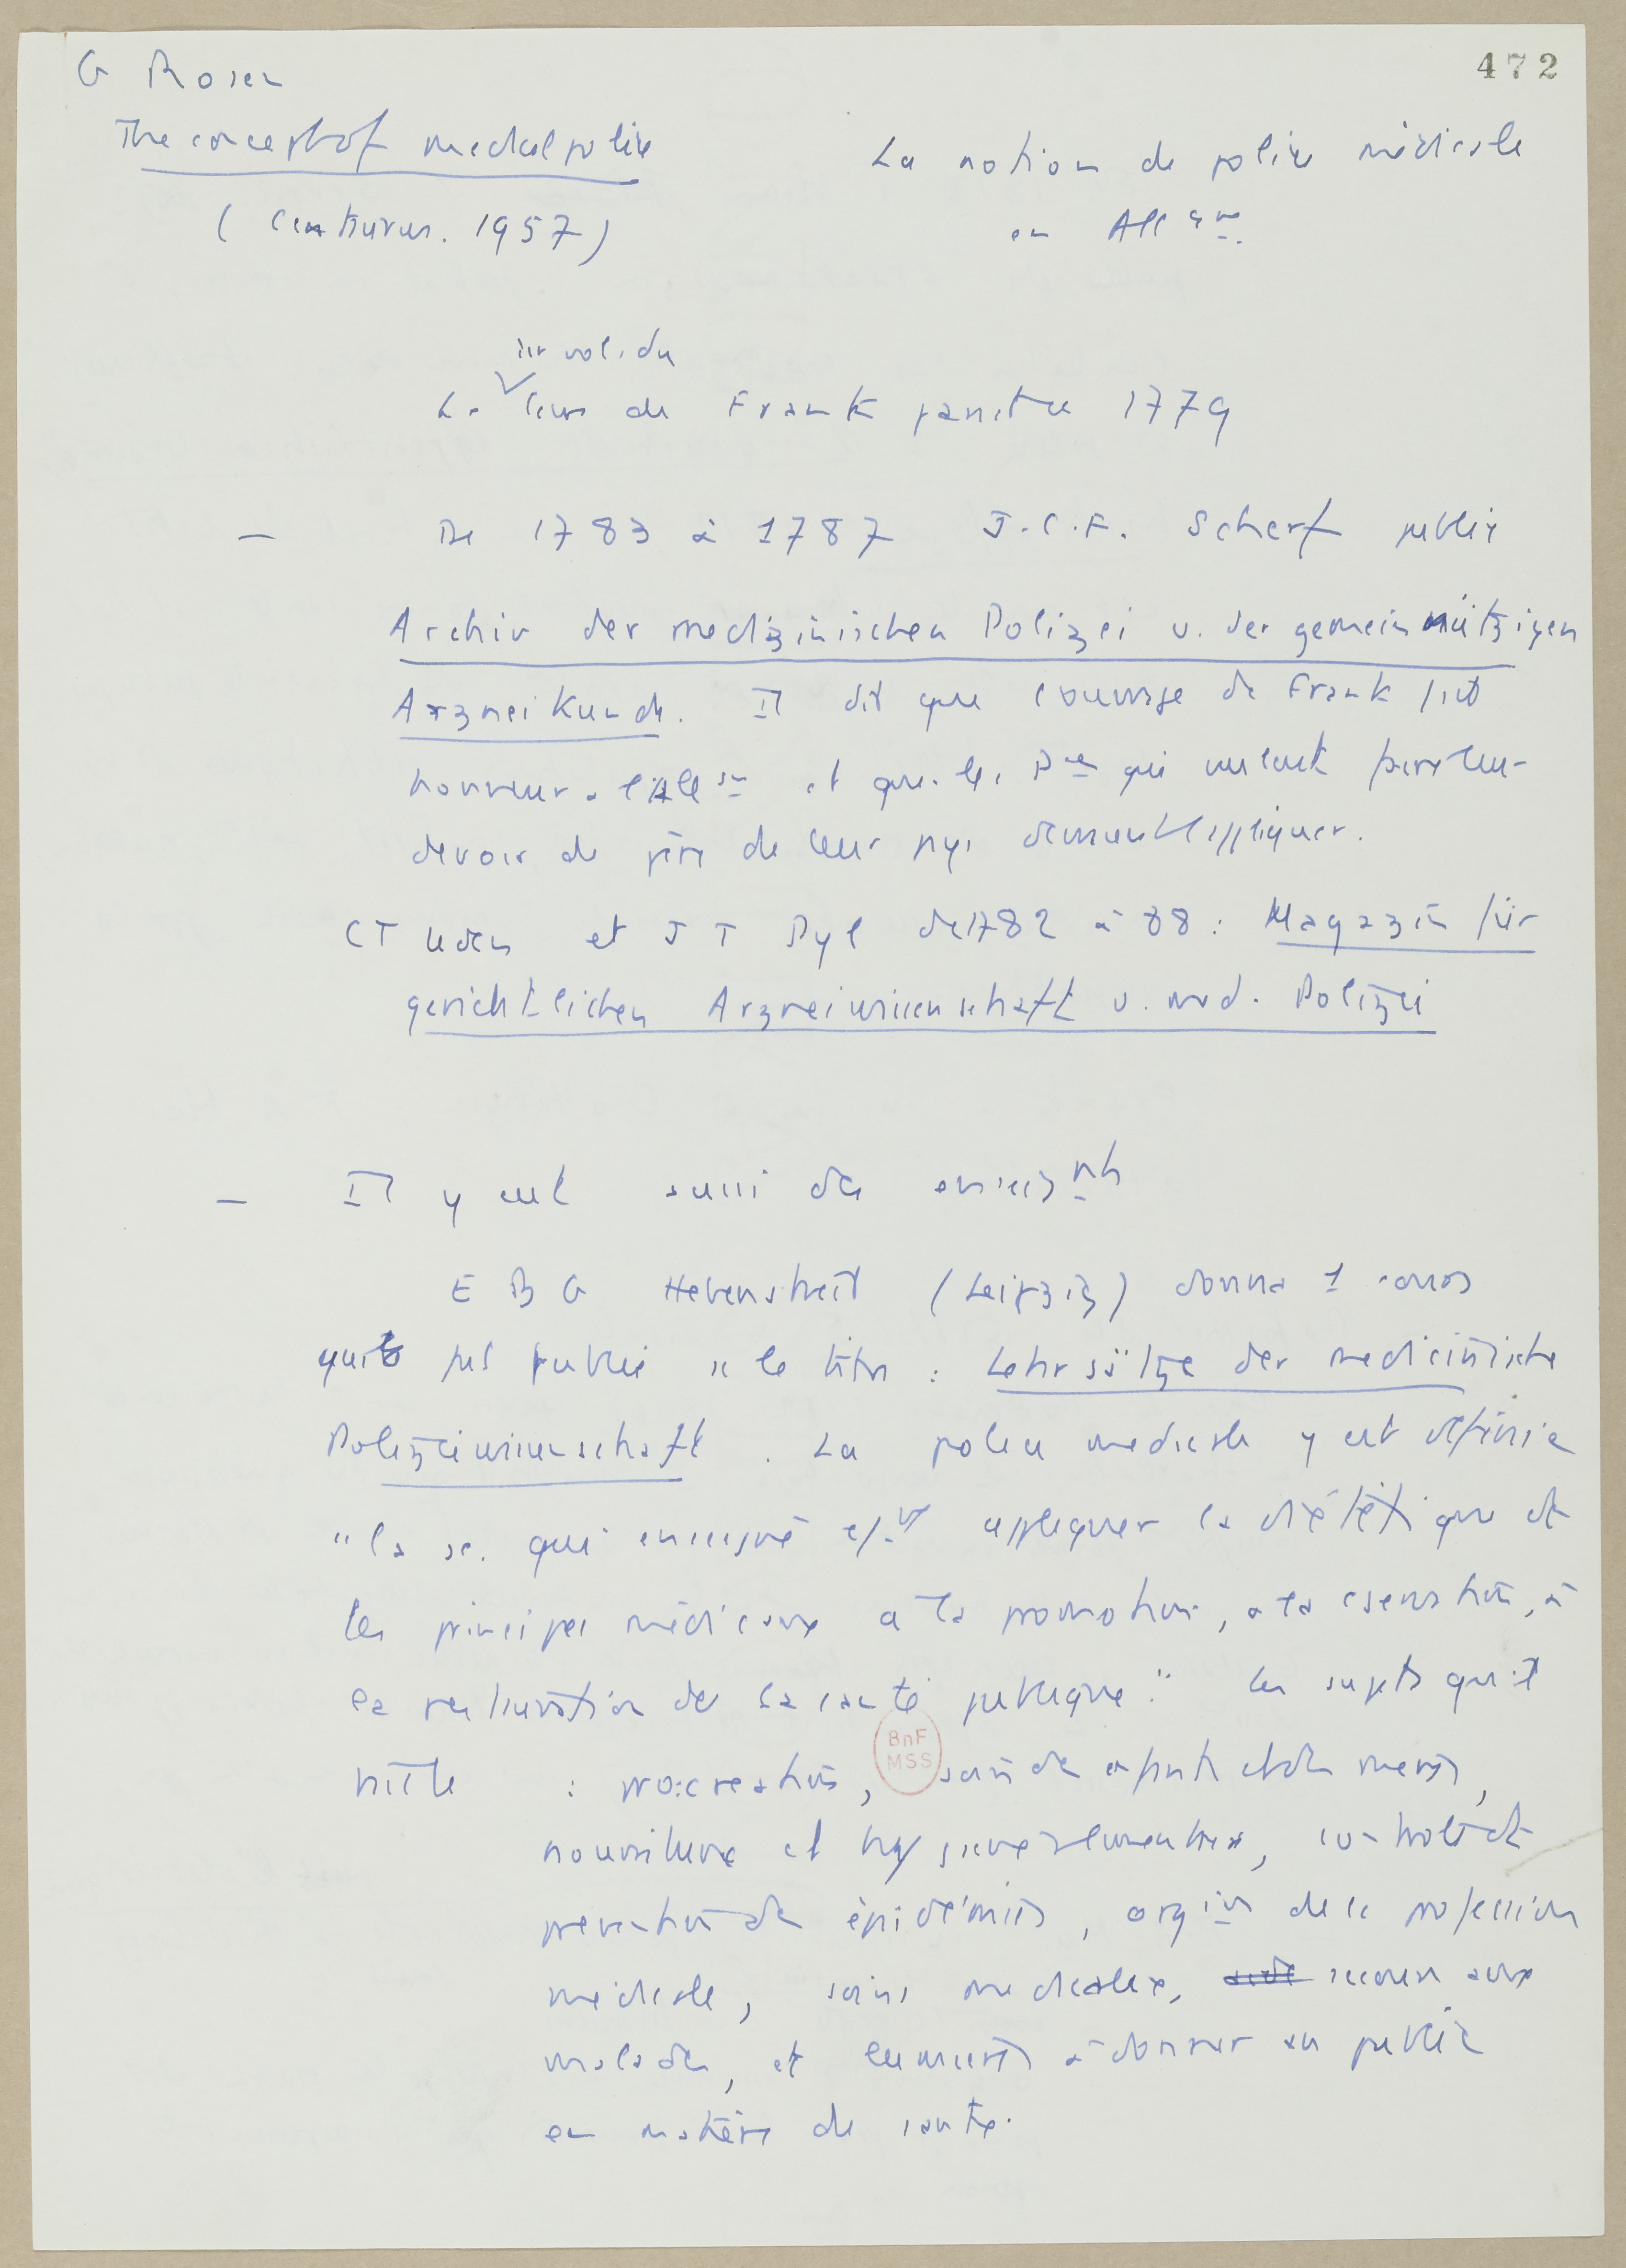 472
G Rosen
The concept of medical police
(Centaurus. 1957)
La notion de police médicale
en All gne.
1er vol. du
Le livre de Frank paraît en 1779
— De 1783 à 1787 J.C.F. Scherf publie
Archiv der medizinischen Polizei u. der gemeinnützigen
Arzneikunde. Il dit que l'ouvrage de Frank fait
honneur à l'Allegne et que les Pces qui veulent faire leur
devoir de père de leur pays devront l'appliquer.
CT Uden et J T Pyl de 1782 à 88 : Magazin für
gerichtlichen Arzneiwissenschaft u. med. Polizei
— Il y eut aussi des enseignts
E B G Hebenstreit (Leipzig) donna 1 cours
qui fut publié ss le titre : Lehrsätze der medicinische
Polizeiwissenschaft. La police medicale y est définie
"la sc. qui enseigne cᵗ appliquer la diététique et
les principes médicaux a la promotion, a la conservation, à
la restauration de la santé publique." Les sujets qu'il
traite : procreation, soin des enfants et des mères,
nourriture et hygiene alimentaire, controle et
prevention des épidémies, orgion de la profession
medicale, soins medicaux, secours aux
malades, et à donner au public
en matière de santé.
BnF
MSS